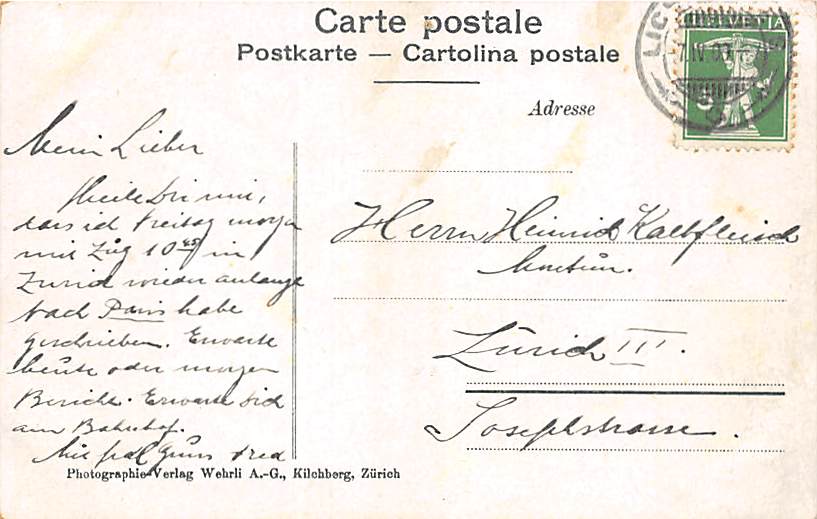 Carte postale
Postkarte — Cartolina postale
HELVETIA
Adresse
Mein Lieber
Theile Dir mit,
dass ich Freitag morgen
mit Zug 10 45 in
Zürich wieder anlange
Nach Paris habe
geschrieben. Erwarte
heute oder morgen
Bericht. Erwarte Dich
am Bahnhof.
Mit Gruss
Herrn Heinrich Kalbfleisch
Zürich III.
Josefstrasse.
Photographie-Verlag Wehrli A.-G., Kilchberg, Zürich